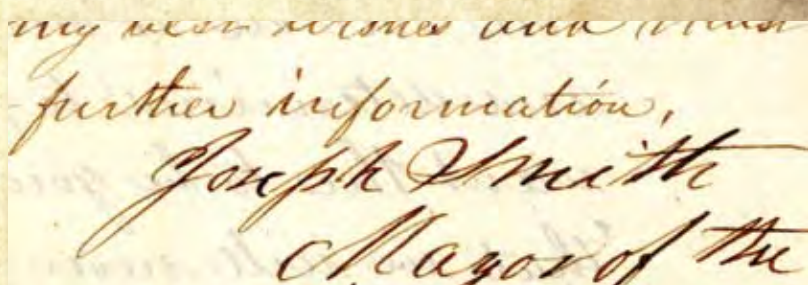 my best wishes and
further information,
Joseph Smith
Mayor of the